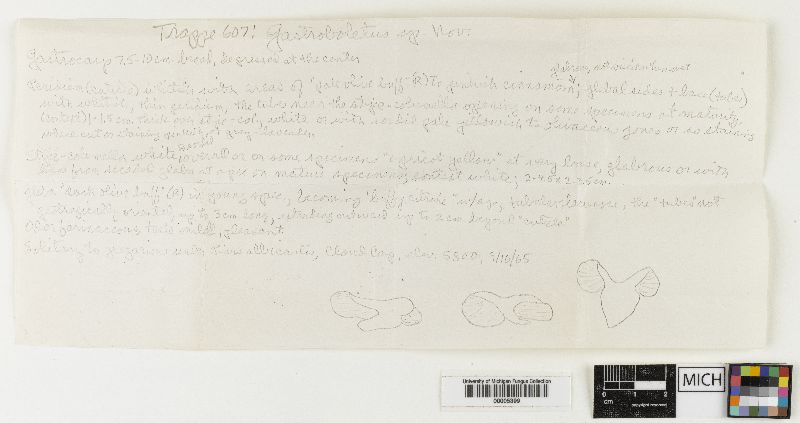 Trappe 607: Gastroboletus sp. nov.
Gastrocarp 7.5-10 cm broad, depressed at the center
glabrous, not viscid when wet
Peridium (cuticle) whitish with areas of "pale olive buff" (R) to pinkish cinnamon; glebal sides & base (tubes)
with whitish, thin peridium, the tubes near the stipe-columella opening on some specimens at maturity;
(context) 1.5 cm thick over stipe-col, white or with sordid pale yellowish to olivaceous zones or so staining
where cut or staining
Stipe-columella white overall or on some specimens "apricot yellow" at very base, glabrous or with
at apex on mature specimens; context white; 2-4.5 x 2-3.5 cm.
Gleba "dark olive buff" (R) in young spec, becoming "buffy citrine" w/age, tubular-lacunose, the "tubes" not
geotropically oriented, up to 3 cm long, extending outward up to 2 cm beyond "cuticle"
Odor farinaceous taste mild, pleasant.
Solitary to gregarious under Pinus albicaulis, Cloud Cap, elev. 5800, 9/16/65
University of Michigan Fungus Collection
00005399
0 1 2
cm
copyright reserved
MICH